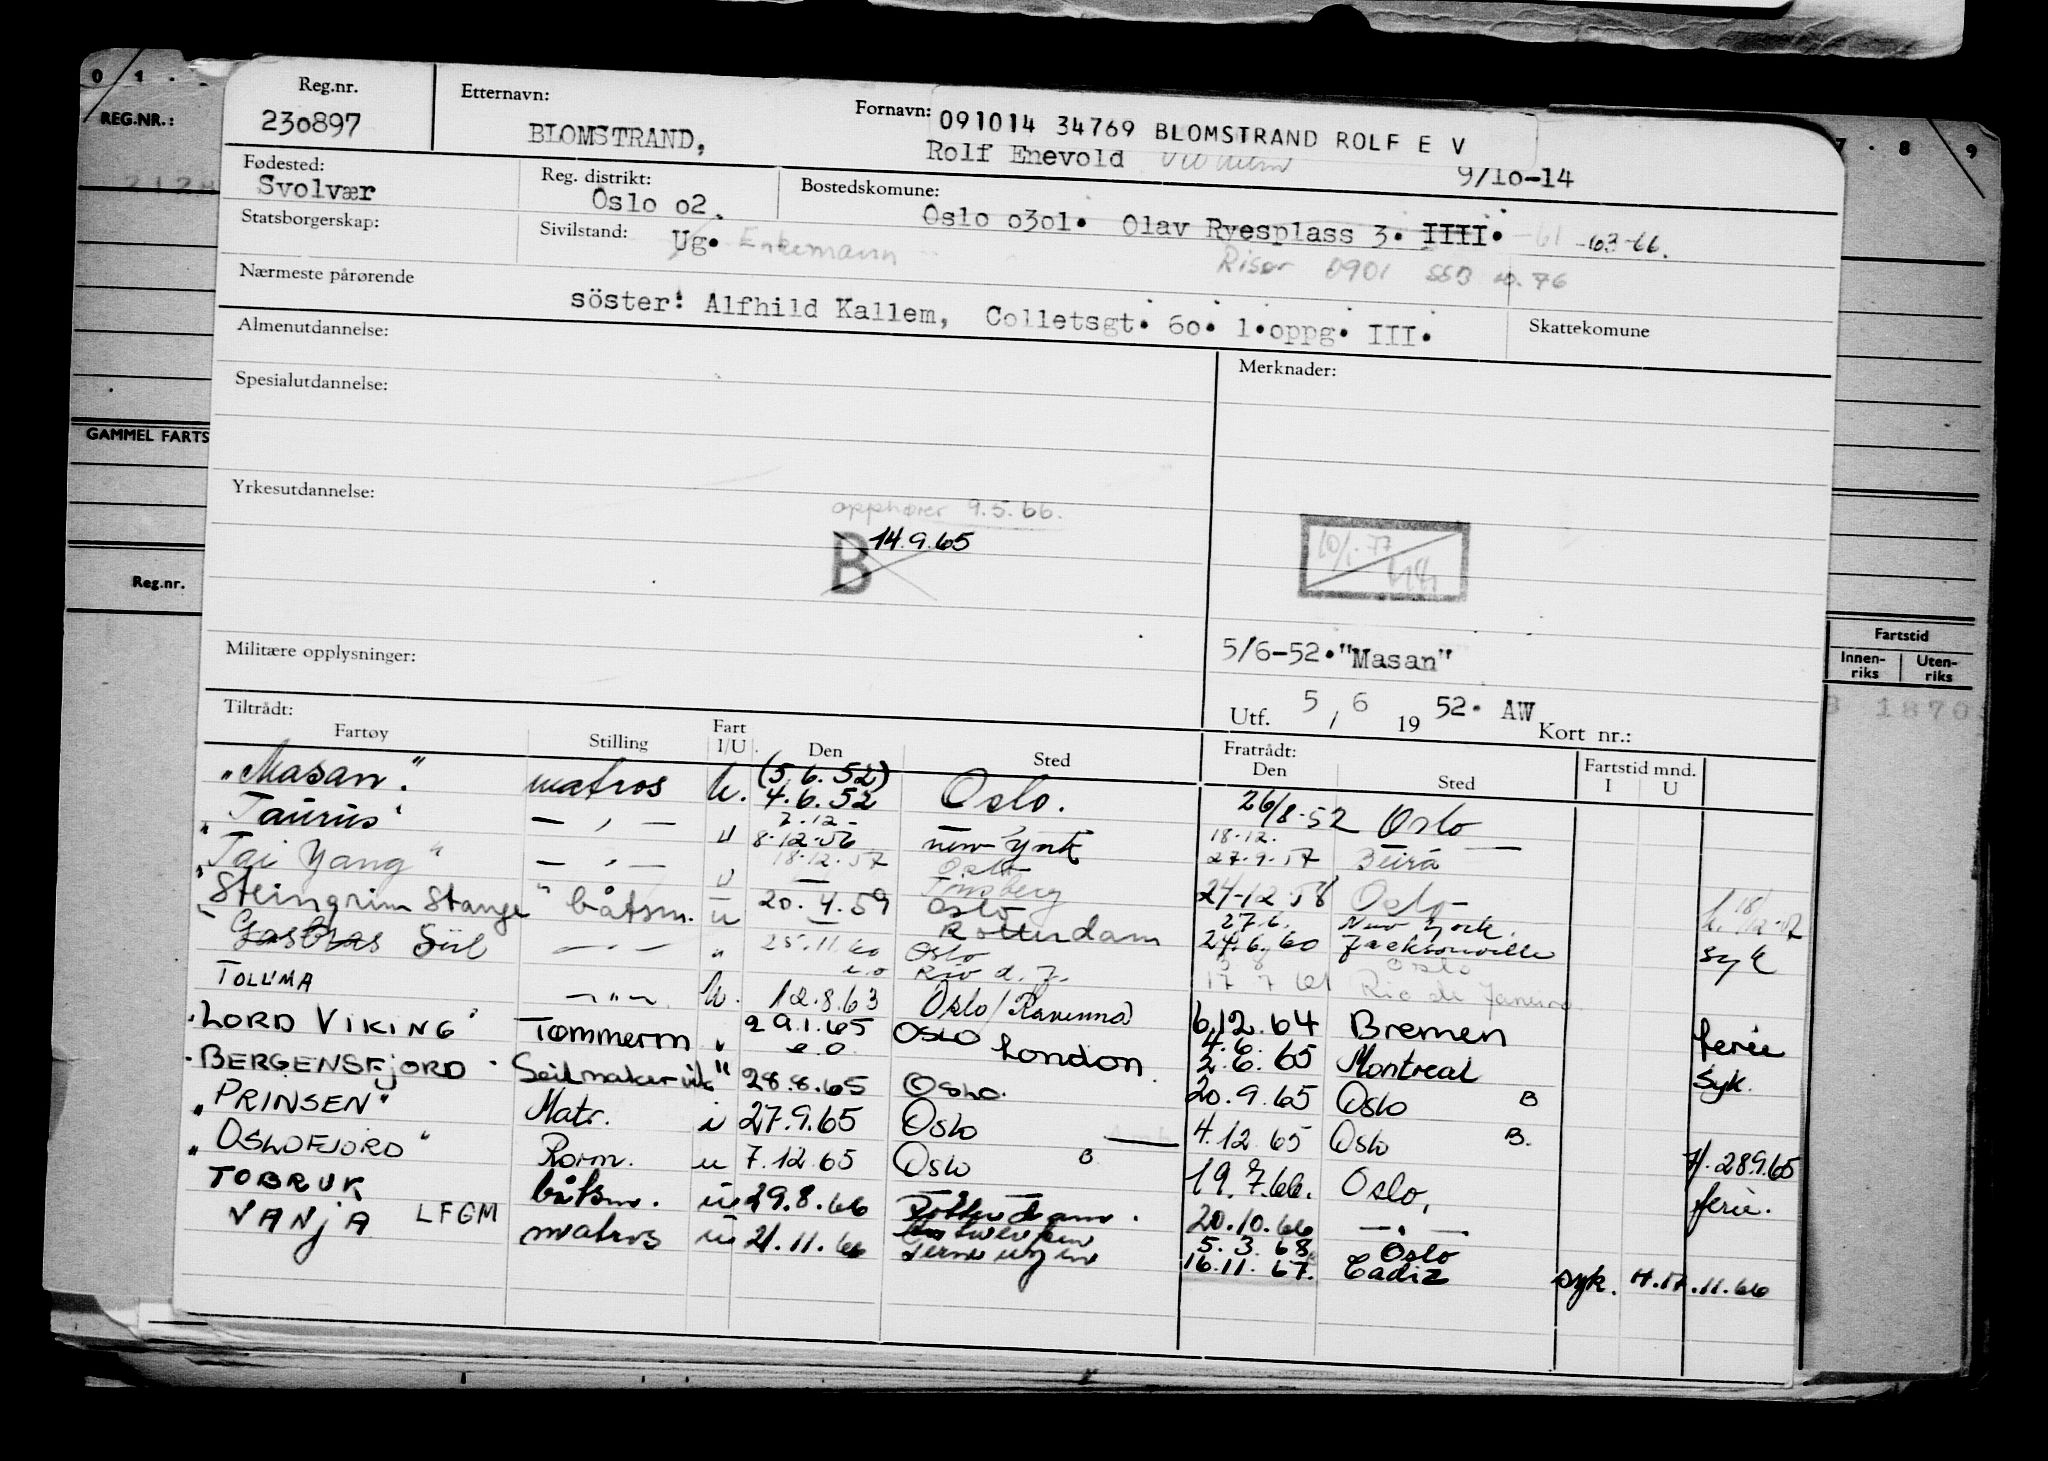 0 1 . 7 . 8 9
REG.NR.:
GAMMEL FARTS
Reg.nr.
Fartstid
Innen-riks Uten-riks
1870
Reg.nr. Etternavn: Fornavn: 091014 34769 BLOMSTRAND ROLF E V
230897 BLOMSTRAND, Rolf Enevold 9/10-14
Fødested: Reg. distrikt: Bostedskomune:
Svolvær Oslo 02. Oslo 0301. Olav Ryesplass 3. IIII. -61 -63-66.
Statsborgerskap: Sivilstand: Ug. Enkemann Risør 0901 SSB 76
Nærmeste pårørende
söster: Alfhild Kallem, Colletsgt. 60. 1.oppg. III.
Almenutdannelse: Skattekomune
Spesialutdannelse: Merknader:
Yrkesutdannelse:
opphører 9.5.66.
B 14.9.65
10/1-77
Militære opplysninger: 5/6-52."Masan"
Utf. 5 / 6 19 52. AW Kort nr.:
Tiltrådt: Fratrådt:
Fartøy Stilling Fart I/U Den Sted Den Sted Fartstid mnd. I U
"Masan." matros u. (5.6.52) 4.6.52 Oslo. 26/8-52 Oslo
"Taurus" — " — u 7.12- 8.12.56 New York 18.12. 27.9.57 Beira
"Tai Yang" — " — u 18.12.57 Oslo Tönsberg 24-12-58 Oslo
"Steingrim Stange" båtsm. u 20.4.59 Oslo Rotterdam 27.6. 24.6.60 New York. Jacksonville syk
" Siil — " — " 25.11.60 Oslo Rio d. J. 17 7 61 Oslo Rio de Janeiro
TOLUMA — " — u. 12.8.63 Oslo/Ravenna 6.12.64 Bremen ferie
"LORD VIKING" Tømmerm " 29.1.65 OSLO London. 4.6. 2.6.65 Montreal syk.
"BERGENSFJORD" Seilmaker vik " 28.8.65 Oslo. 20.9.65 Oslo B
"PRINSEN" Matr. i 27.9.65 Oslo 4.12.65 Oslo B. 28.9.65
"OSLOFJORD" Rorm. u 7.12.65 Oslo B 19.7.66. Oslo, ferie.
TOBRUK båtsm. u 29.8.66 Rotterdam. 20.10.66 — " —
VANJA LFGM matros u 21.11.66 Antwerpen Terneuzen 5.3.68 16.11.67. Oslo Cadiz syk. 11.66